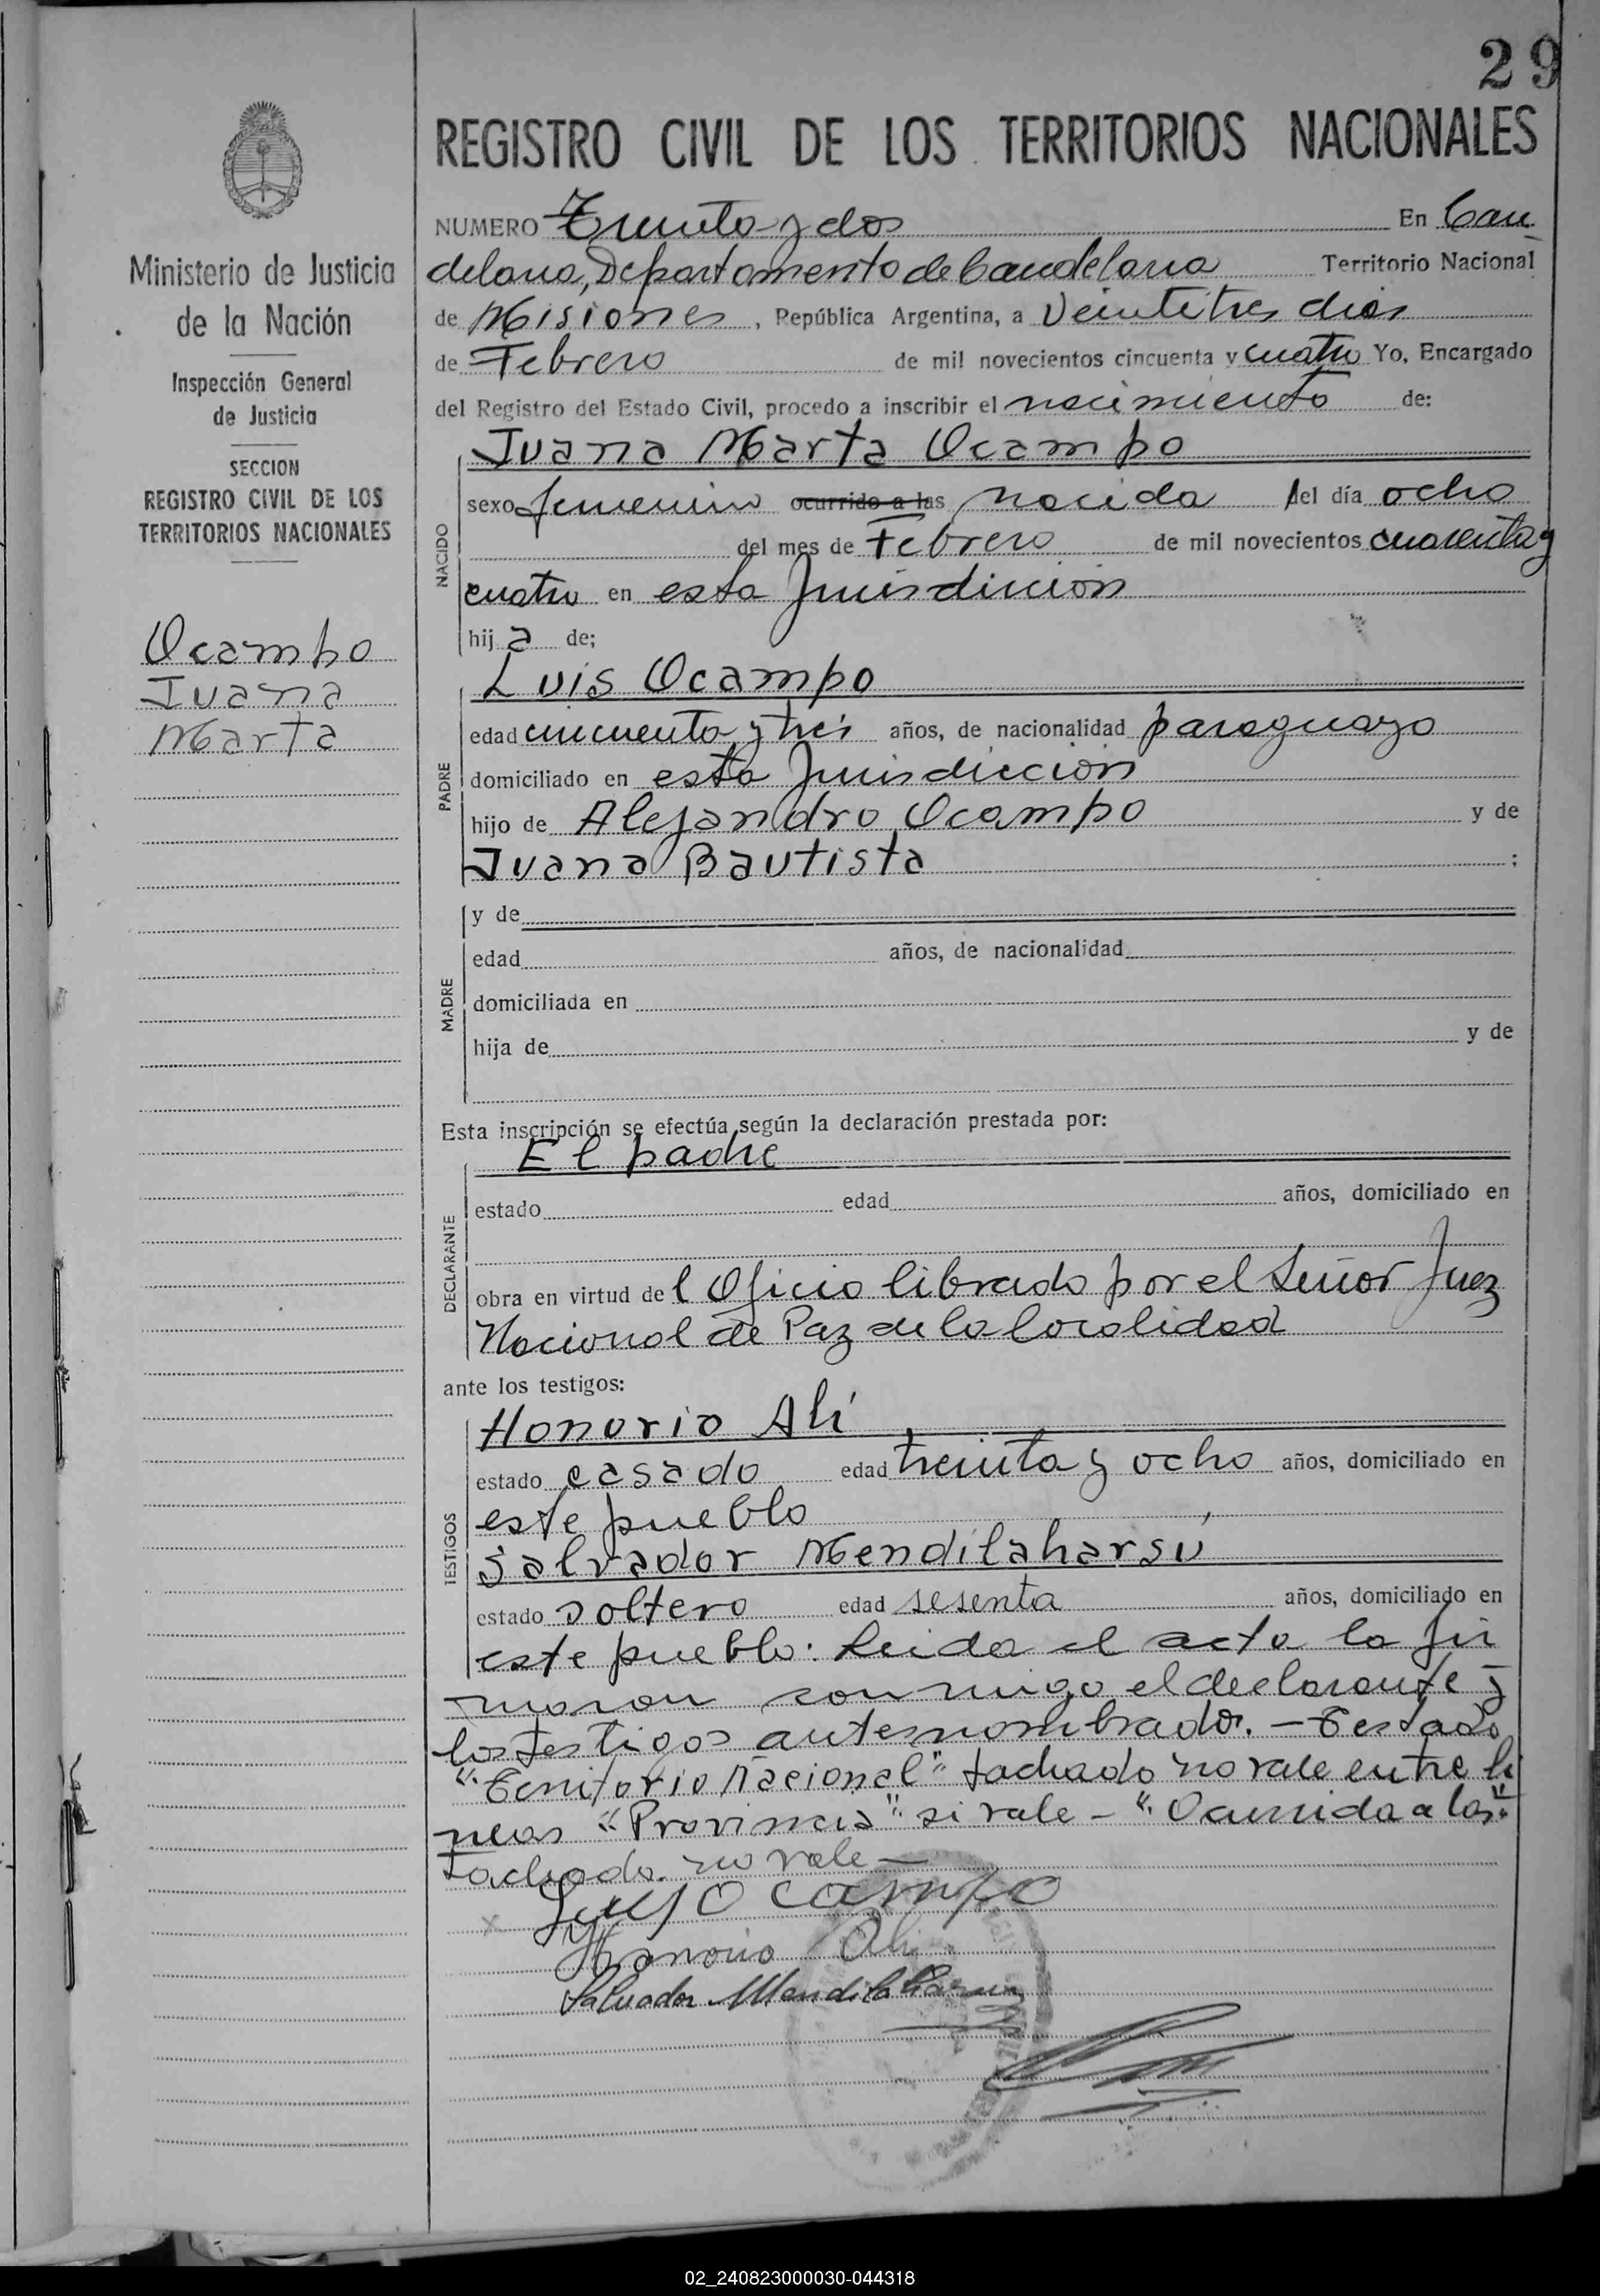 29
REGISTRO CIVIL DE LOS TERRITORIOS NACIONALES
Ministerio de Justicia
de la Nación
Inspección General
de Justicia
SECCION
REGISTRO CIVIL DE LOS
TERRITORIOS NACIONALES
Ocampo
Juana
Marta
NUMERO Treinta y dos En Can
delaria, Departamento de Candelaria Territorio Nacional
de Misiones, República Argentina, a Veintitres dias
de Febrero de mil novecientos cincuenta y cuatro Yo, Encargado
del Registro del Estado Civil, procedo a inscribir el nacimiento de:
NACIDO
Juana Marta Ocampo
sexo femenino ocurrido a las nacida del día ocho
del mes de Febrero de mil novecientos cuarenta y
cuatro en esta Jurisdiccion
hija de;
PADRE
Luis Ocampo
edad cincuenta y tres años, de nacionalidad paraguayo
domiciliado en esta Jurisdiccion
hijo de Alejandro Ocampo y de
Juana Bautista ;
MADRE
y de
edad años, de nacionalidad
domiciliada en
hija de y de
Esta inscripción se efectúa según la declaración prestada por:
DECLARANTE
El padre
estado edad años, domiciliado en
obra en virtud del Oficio librado por el Señor Juez
Nacional de Paz de la localidad
ante los testigos:
TESTIGOS
Honorio Alí
estado casado edad treinta y ocho años, domiciliado en
este pueblo
Salvador Mendilaharsú
estado soltero edad sesenta años, domiciliado en
este pueblo: Leida el acta la fir
maron conmigo el declarante y
los testigos antes nombrados. - Testado
"Territorio Nacional" tachado no vale entre li
neas "Provincia" si vale - "Ocurrida a las"
tachado no vale -
Luis Ocampo
Honorio Ali
Salvador Mendilaharsu
02_240823000030-044318